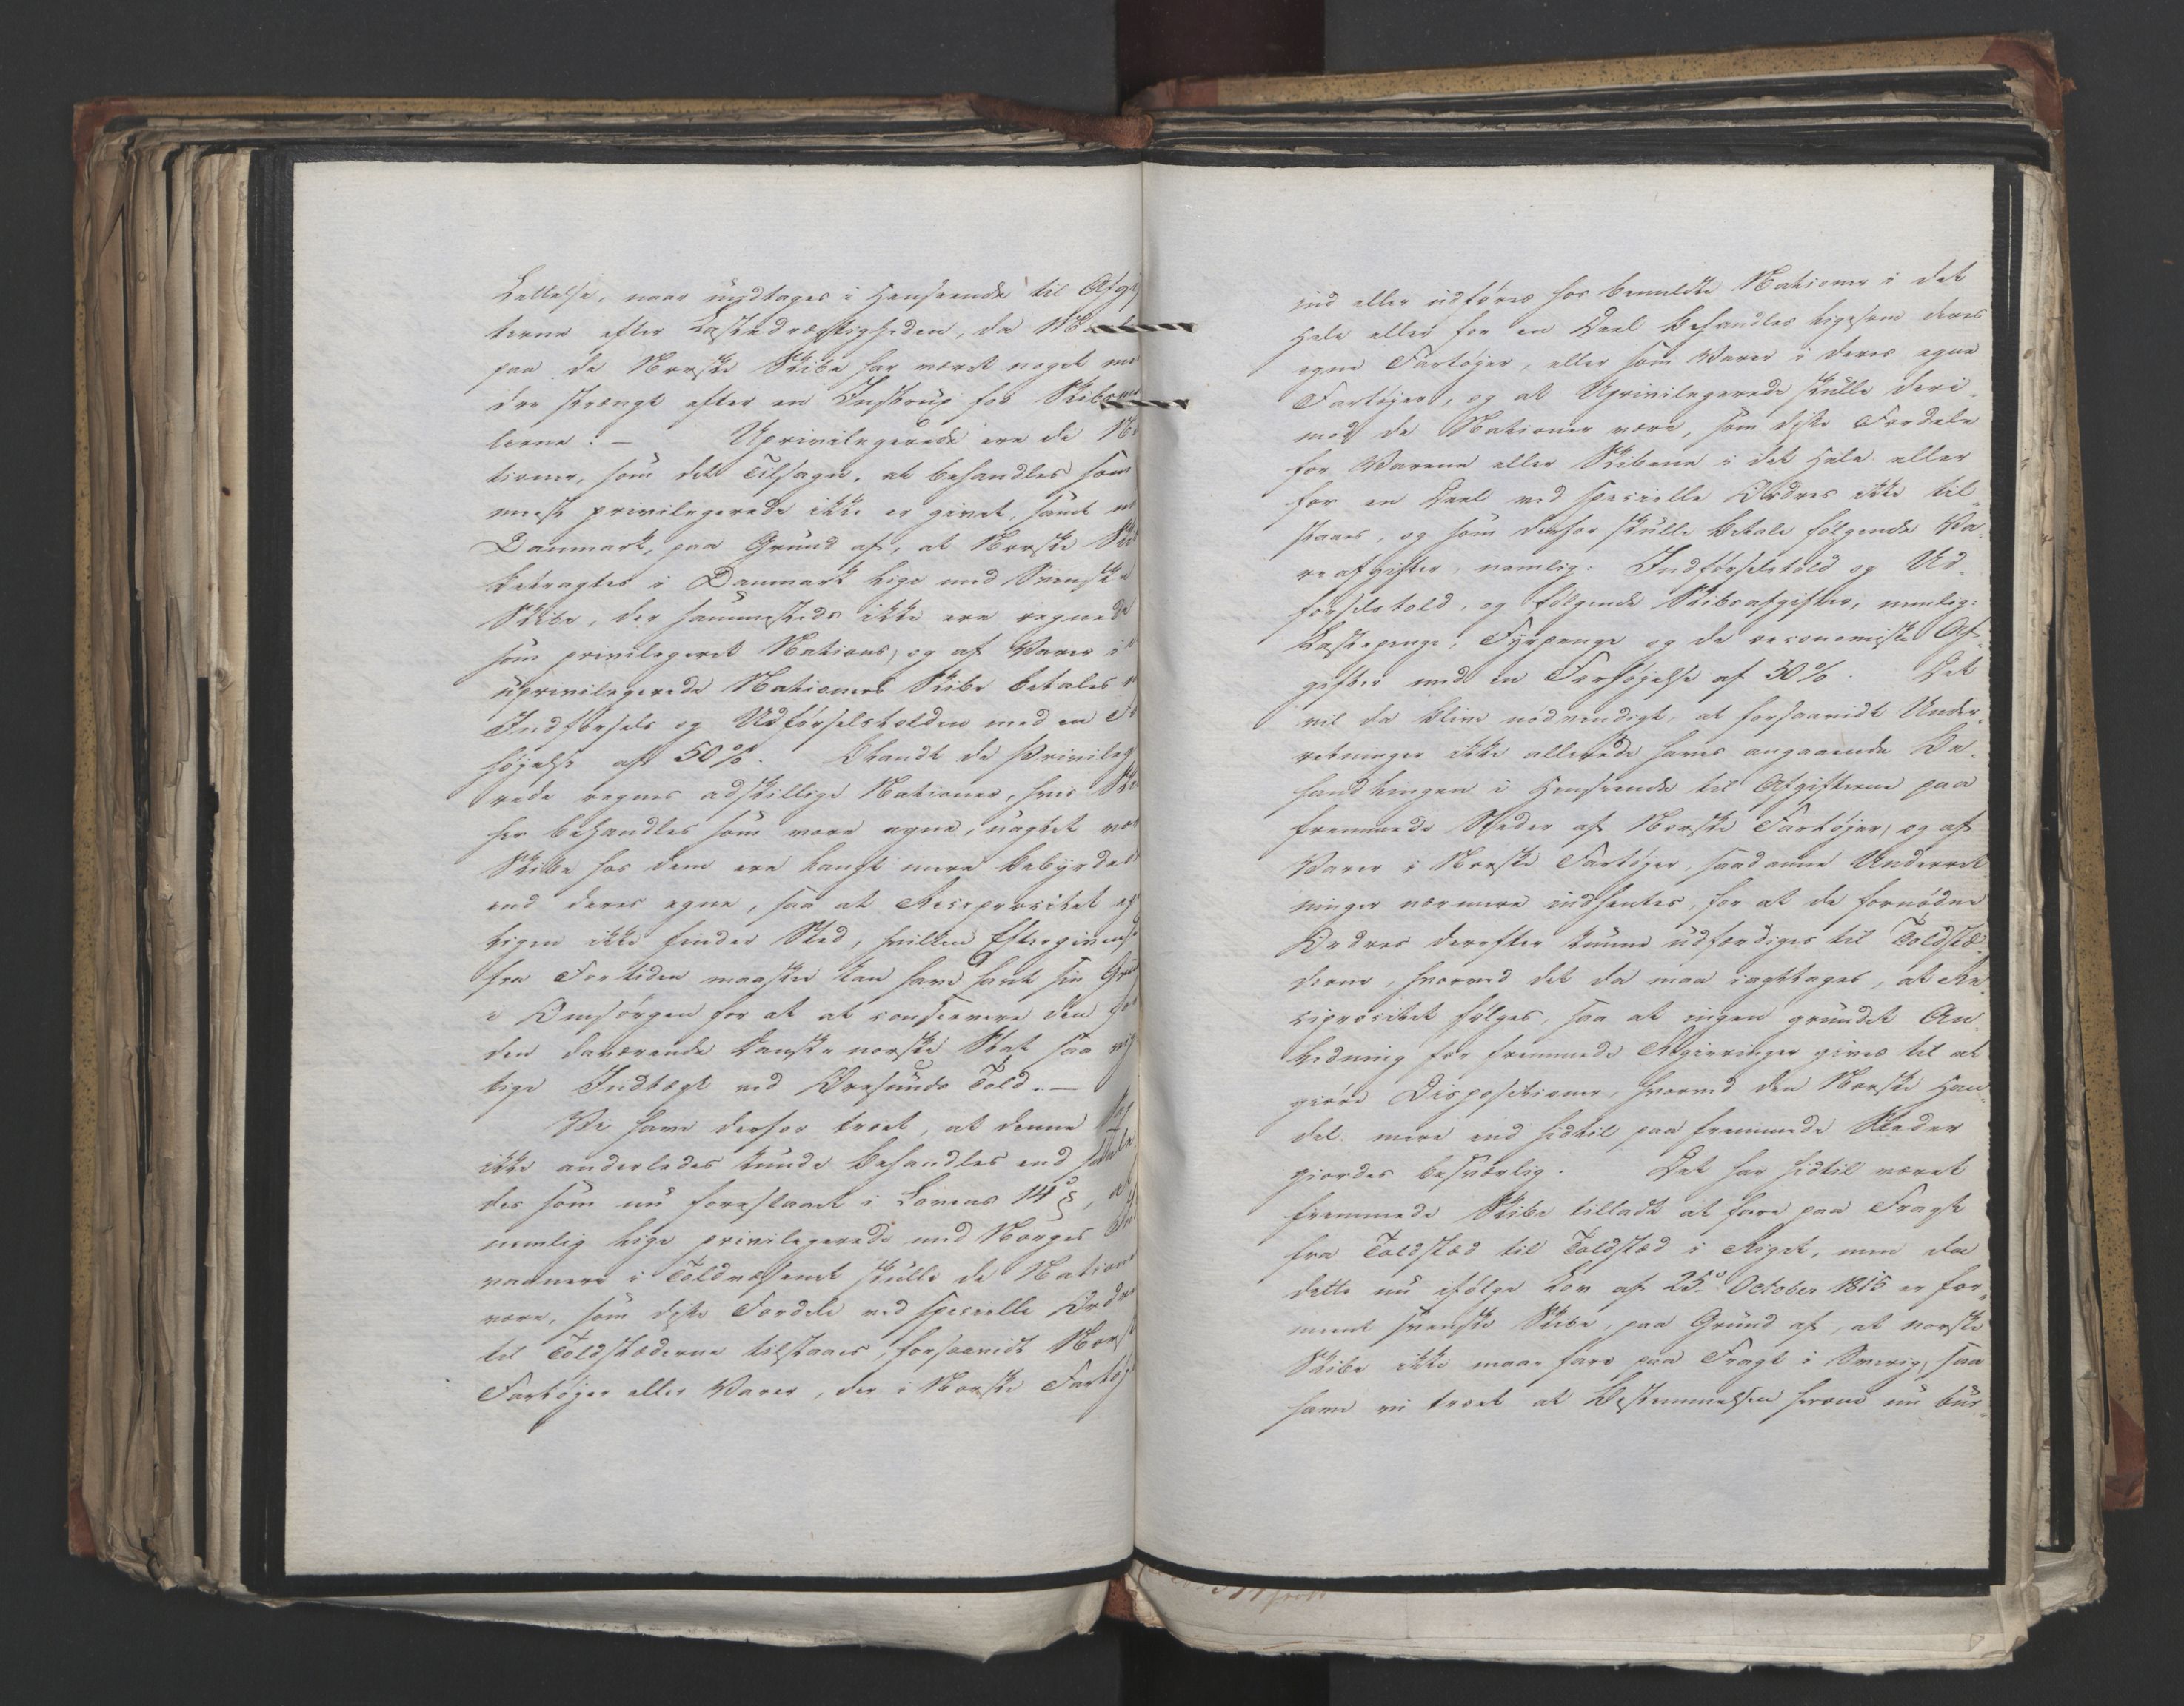 Lettelse, naar undtages i Henseende til Afgif
terne efter Lastedrægtigheden, da
paa de Norske Skibe har været noget min
dre strængt efter en Instrux for Skibsmaa
lerne. — Uprivilegerede ere de Na
tioner, som det Tilsagn, at behandles som
meest privilegerede ikke er givet, samt
Danmark, paa Grund af, at Norske Skibe
betragtes i Danmark lige med Svenske
Skibe, der sammesteds ikke ere regnede
som privilegeret Nations, og af Varer i
uprivilegerede Nationers Skibe betales
Indførsels og Udførselstolden med en For
højelse af 50 %. Blandt de Privilege
rede regnes adskillige Nationer, hvis Skibe
her behandles som vore egne, uagtet vore
Skibe hos dem ere langt mere bebyrdede
end deres egne, saa at Reciprocitet
ligen ikke finder Sted, hvilken Eftergivenhed
fra Fortiden maaskee kan have havt sin Grund
i Omsorgen for at at conservere den for
den daværende Dansk-norske Stat saa vig
tige Indtægt ved Øresunds Told. —
Vi have derfor troet, at denne
ikke anderledes kunde behandles end saale
des som nu foreslaaet i Lovens 14 §, at
nemlig lige privilegerede med Norges
vaanere i Toldvæsenet skulle de Nationer
være, som disse Fordele ved specielle Ordrer
til Toldstæderne tilstaaes, forsaavidt Norske
Fartøjer eller Varer, der i Norske Fartøjer
ind eller udføres hos bemeldte Nationer i det
Hele eller for en Deel behandles ligesom deres
egne Fartøjer, eller som Varer i deres egne
Fartøjer, og at Uprivilegerede skulle deri-
mod de Nationer være, som disse Fordele
for Varene eller Skibene i det Hele eller
for en Deel ved specielle Ordres ikke til-
staaes, og som derfor skulle betale følgende Va-
reafgifter, nemlig: Indførselstold og Ud-
førselstold, og følgende Skibsafgifter, nemlig:
Lastepenge, Fyrpenge og de oeconomiske Af-
gifter med en Forhøjelse af 30 %. Det
vil da blive nødvendigt, at forsaavidt Under-
retninger ikke allerede haves angaaende Be-
handlingen i Henseende til Afgifterne paa
fremmede Steder af Norske Fartøjer, og af
Varer i Norske Fartøjer, saadanne Underret
ninger nærmere indhentes, for at de fornødne
Ordres derefter kunne udfærdiges til Toldstæ-
derne, hvorved det da maa iagttages, at Re-
ciprocitet følges, saa at ingen grundet An-
ledning for fremmede Regieringer gives til at
giøre Dispositioner, hvorved den Norske Han-
del mere end hidtil paa fremmede Steder
giordes besværlig. Det har hidtil været
fremmede Skibe tilladt at fare paa Fragt
fra Toldsted til Toldsted i Riget, men da
dette nu ifølge Lov af 25de October 1815 er for-
meent svenske Skibe, paa Grund af, at norske
Skibe ikke maae fare paa Fragt i Sverig, saa
have vi troet at Bestemmelsen herom nu bur-